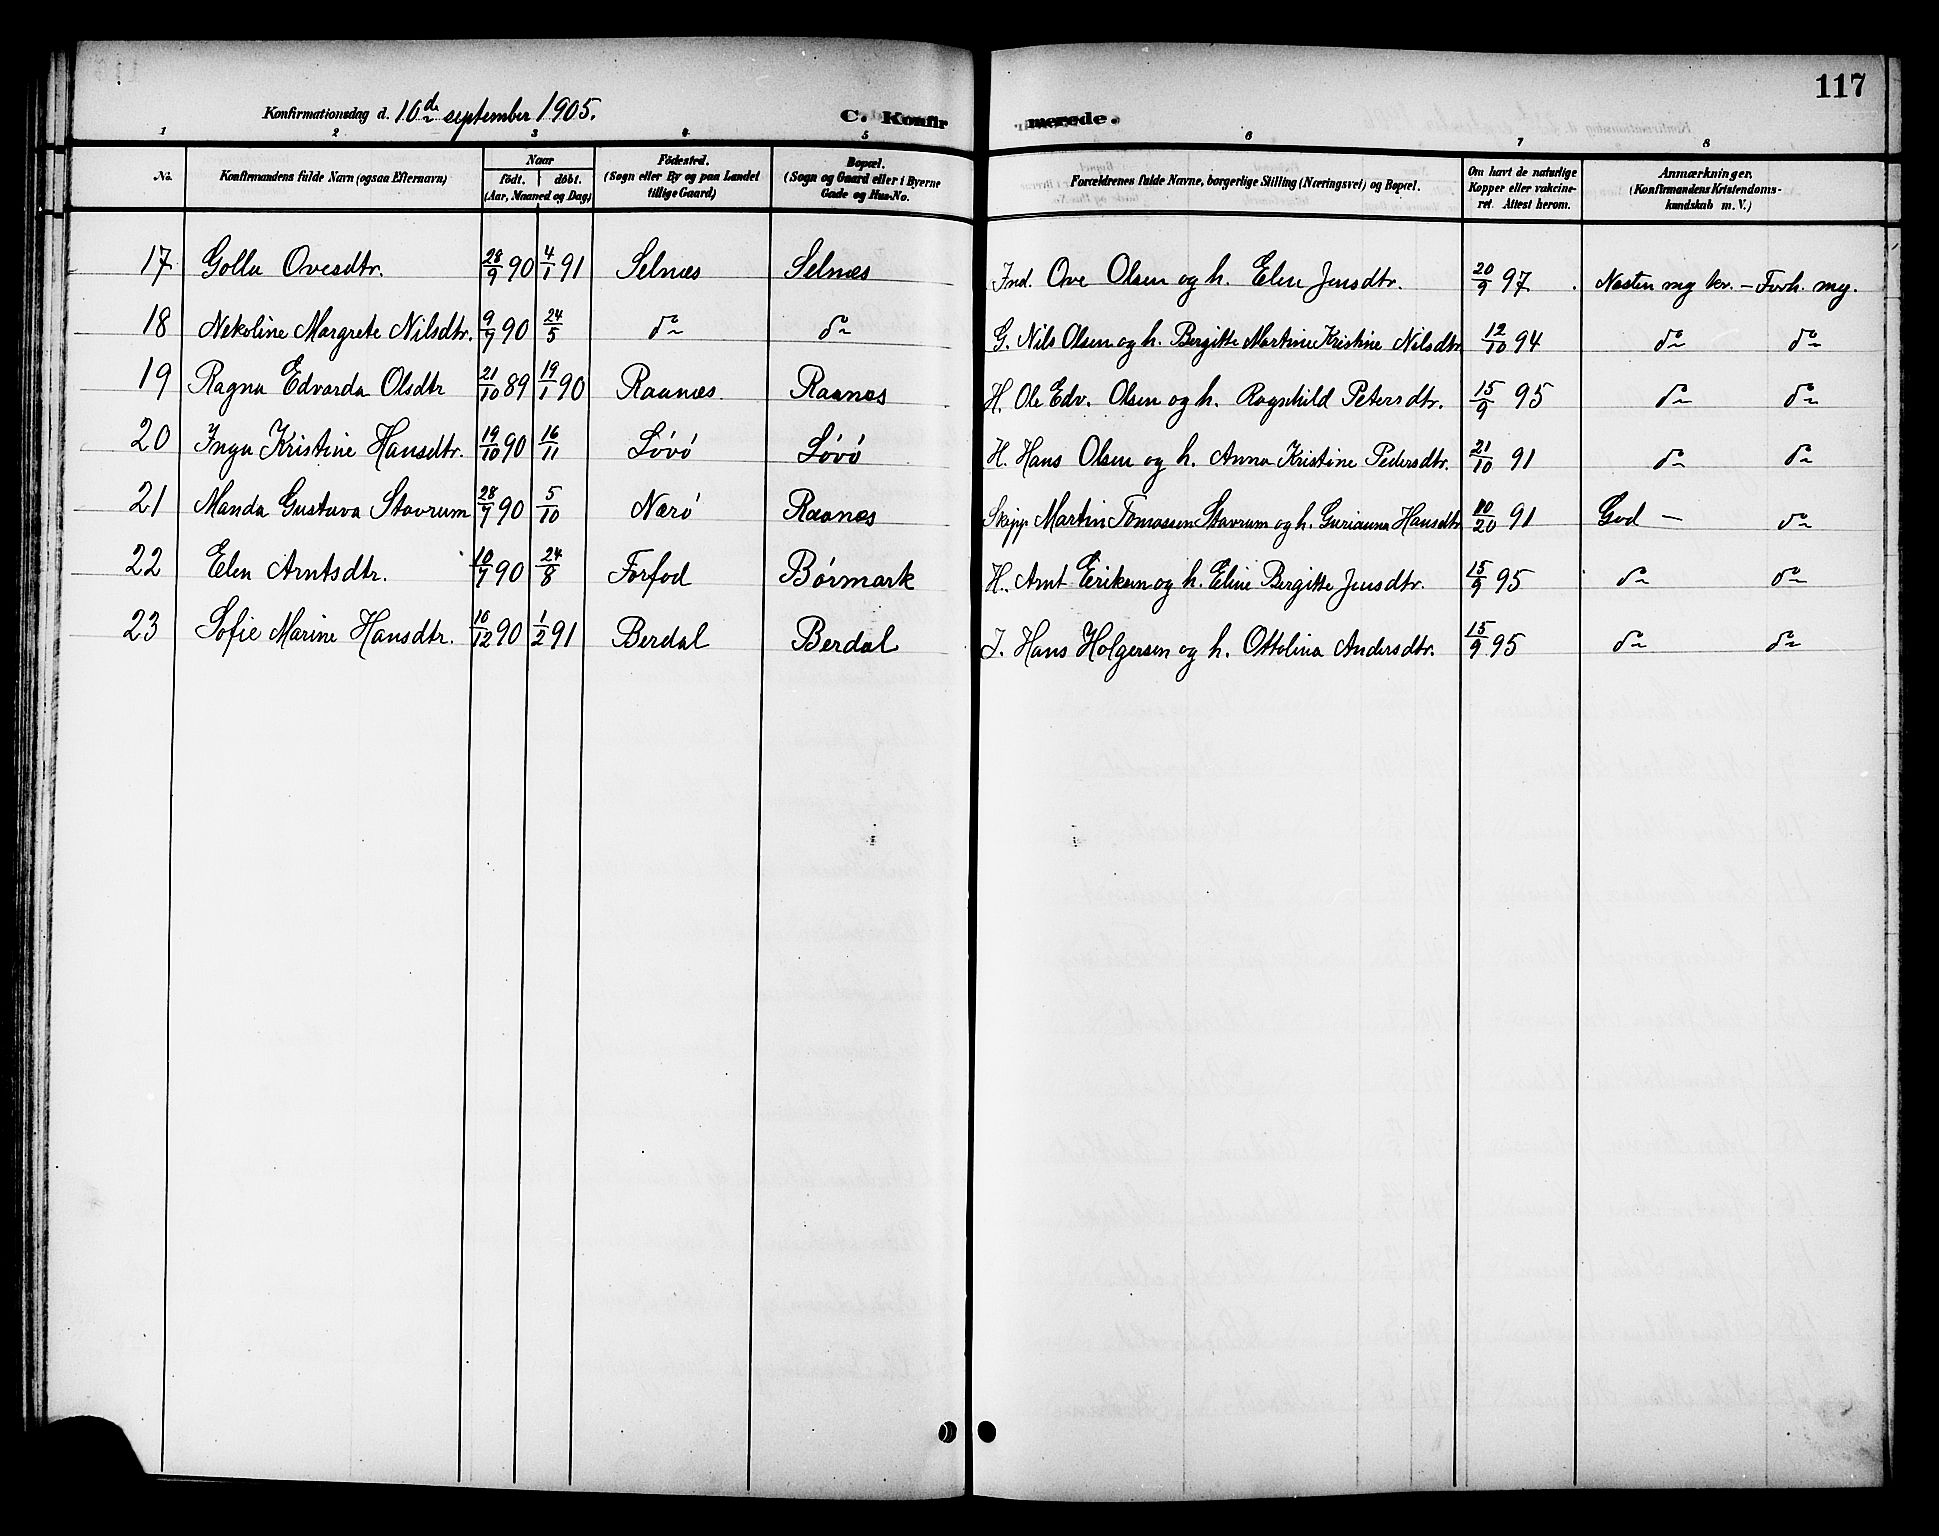 117
Konfirmationsdag d. 10de september 1905. C. Konfirmerede.
1 2 3 4 5 6 7 8
No. Konfirmandens fulde Navn (ogsaa Efternavn) Naar født. døbt. (Aar, Maaned og Dag) Fødested. (Sogn eller By og paa Landet tillige Gaard) Bopæl. (Sogn og Gaard eller i Byerne Gade og Hus-No. Forældrenes fulde Navne, borgerlige Stilling (Næringsvei) og Bopæl. Om havt de naturlige Kopper eller vakcineret. Attest herom. Anmærkninger. (Konfirmandens Kristendomskundskab m. V.)
17 Golla Ovesdtr. 28/9 90 4/1 91 Selnæs Selnæs Ind. Ove Olsen og h. Elen Jensdtr. 20/9 97. Næsten mg kr. - Forh. mg.
18 Nekoline Margrete Nilsdtr. 9/7 90 24/5 do do G. Nils Olsen og h. Bergitte Martine Kristine Nilsdtr 12/10 94 do do
19 Ragna Edvarda Olsdtr 21/10 89 19/1 90 Raanæs. Raanæs H. Ole Edv. Olsen og h. Ragnhild Petersdtr. 15/9 95 do do
20 Inga Kristine Hansdtr. 19/10 90 16/11 Løvø Løvø H. Hans Olsen og h. Anna Kristine Pedersdtr. 21/10 91 do do
21 Manda Gustava Stavrum 28/7 90 5/10 Nærø Raanæs Skipp Martin Tomassen Stavrum og h. Gurianna Hansdtr 10/20 91 God - do
22 Elen Arntsdtr. 10/7 90 24/8 Forfod Børmark H. Arnt Eriksen og h. Eline Bergitte Jensdtr. 15/9 95 do do
23 Sofie Marine Hansdtr. 10/12 90 1/2 91 Berdal Berdal I. Hans Holgersen og h. Ottolina Andersdtr. 15/9 95 do do